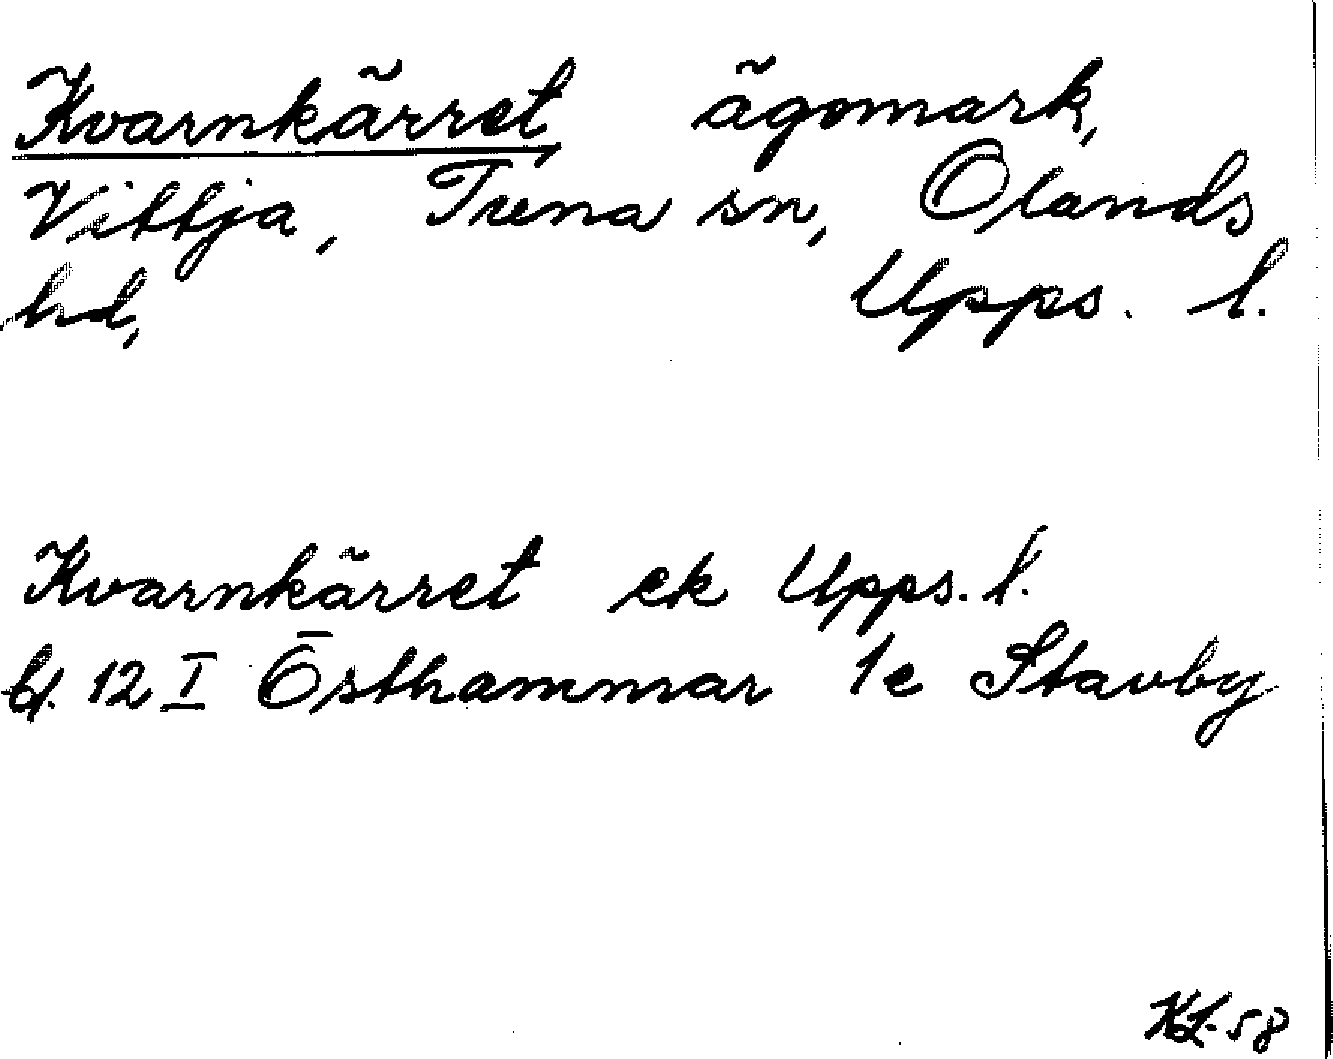 Kvarnkärret ägomark,
Vittja, Tuna sn, Olands
hd, Upps. l.
Kvarnkärret ek Upps. l.
bl. 12 I Östhammar 1e Stavby
KL-58